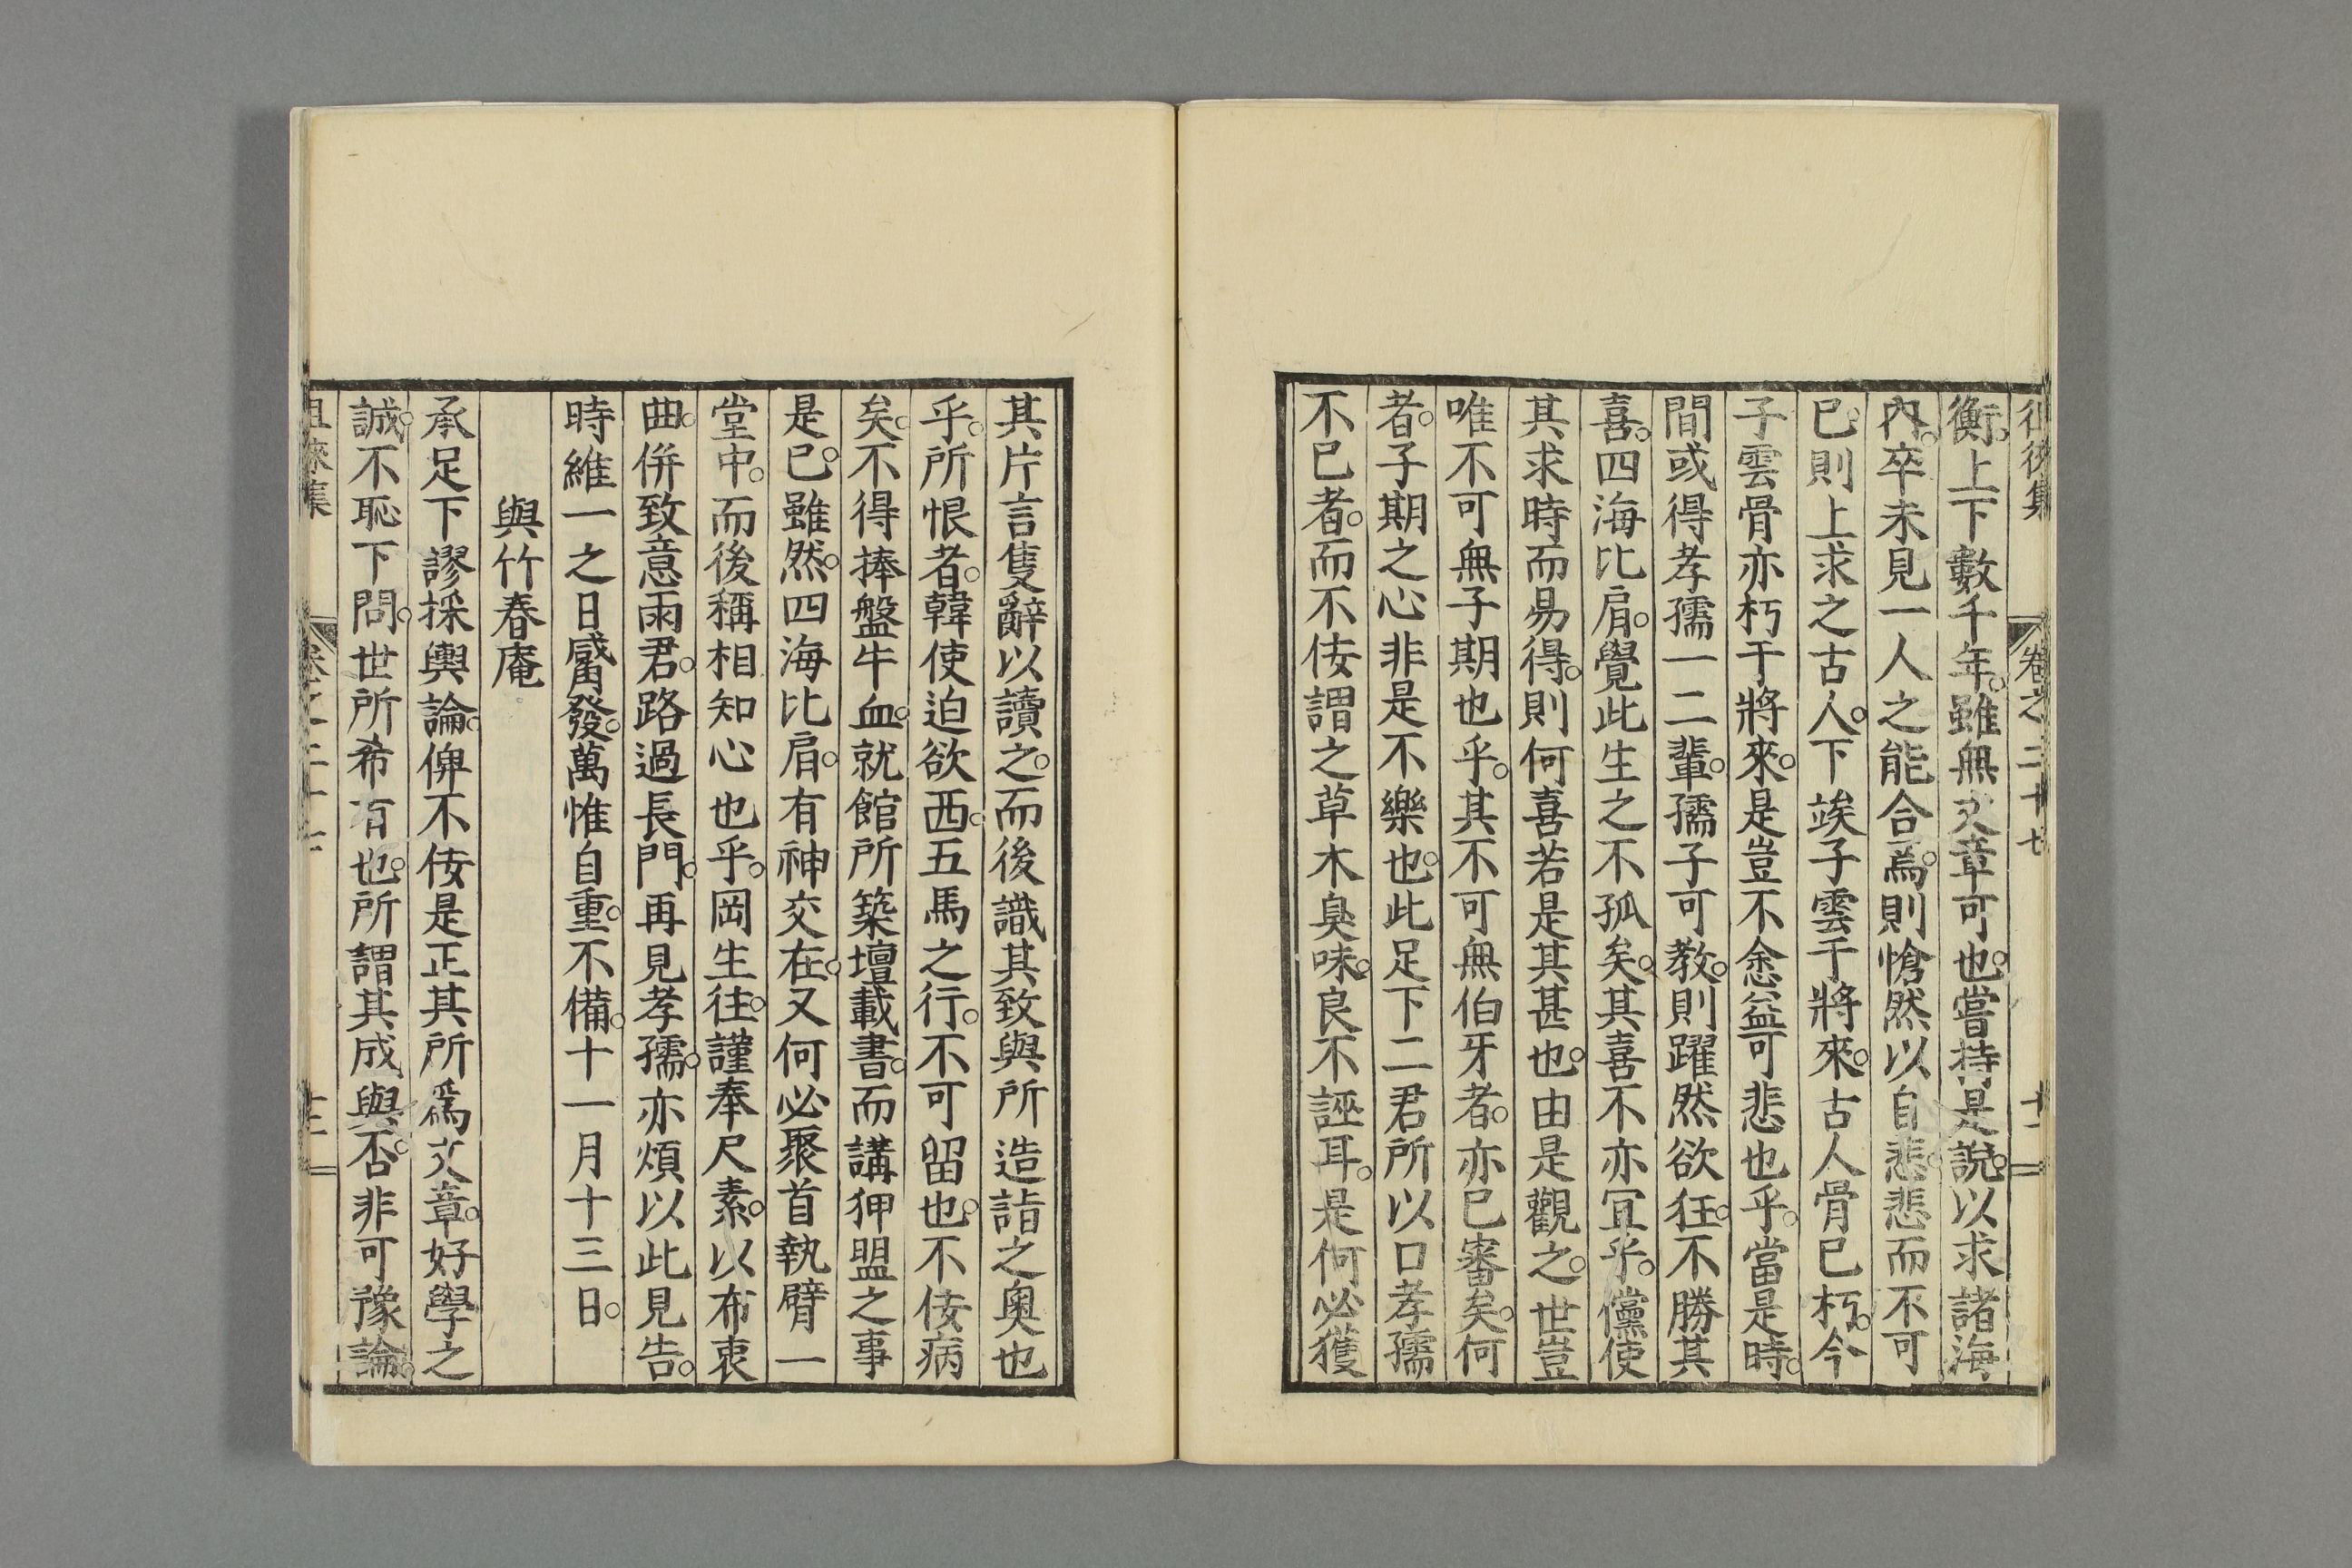 徂徠集 卷之二十七 十二
衡。上下數千年。雖無文章可也。嘗持是說。以求諸海
內。卒未見一人之能合焉。則愴然以自悲。悲而不可
已。則上求之古人。下竢子雲于將來。古人骨已朽。今
子雲骨亦朽于將來。是豈不悆益可悲也乎。當是時。
間或得孝孺一二輩。孺子可教。則躍然欲狂。不勝其
喜。四海比肩。覺此生之不孤矣。其喜不亦冝乎。儻使
其求時而易得。則何喜若是其甚也。由是觀之。世豈
唯不可無子期也乎。其不可無伯牙者。亦已審矣。何
者。子期之心非是不樂也。此足下二君所以口孝孺
不已者。而不侫謂之草木臭味。良不誣耳。是何必獲
其片言隻辭以讀之。而後識其致與所造詣之奧也
乎。所恨者。韓使迫欲西。五馬之行。不可留也。不侫病
矣。不得捧盤牛血。就館所築壇載書。而講狎盟之事
是已。雖然。四海比肩。有神交在。又何必聚首執臂一
堂中。而後稱相知心也乎。岡生往。謹奉尺素。以布衷
曲。併致意雨君。路過長門。再見孝孺。亦煩以此見告。
時維一之日觱發。萬惟自重。不備。十一月十三日。
與竹春庵
承足下謬採輿論。俾不侫是正其所爲文章。好學之
誠。不恥下問。世所希有也。所謂其成與否。非可豫論。
徂徠集 卷之二十七